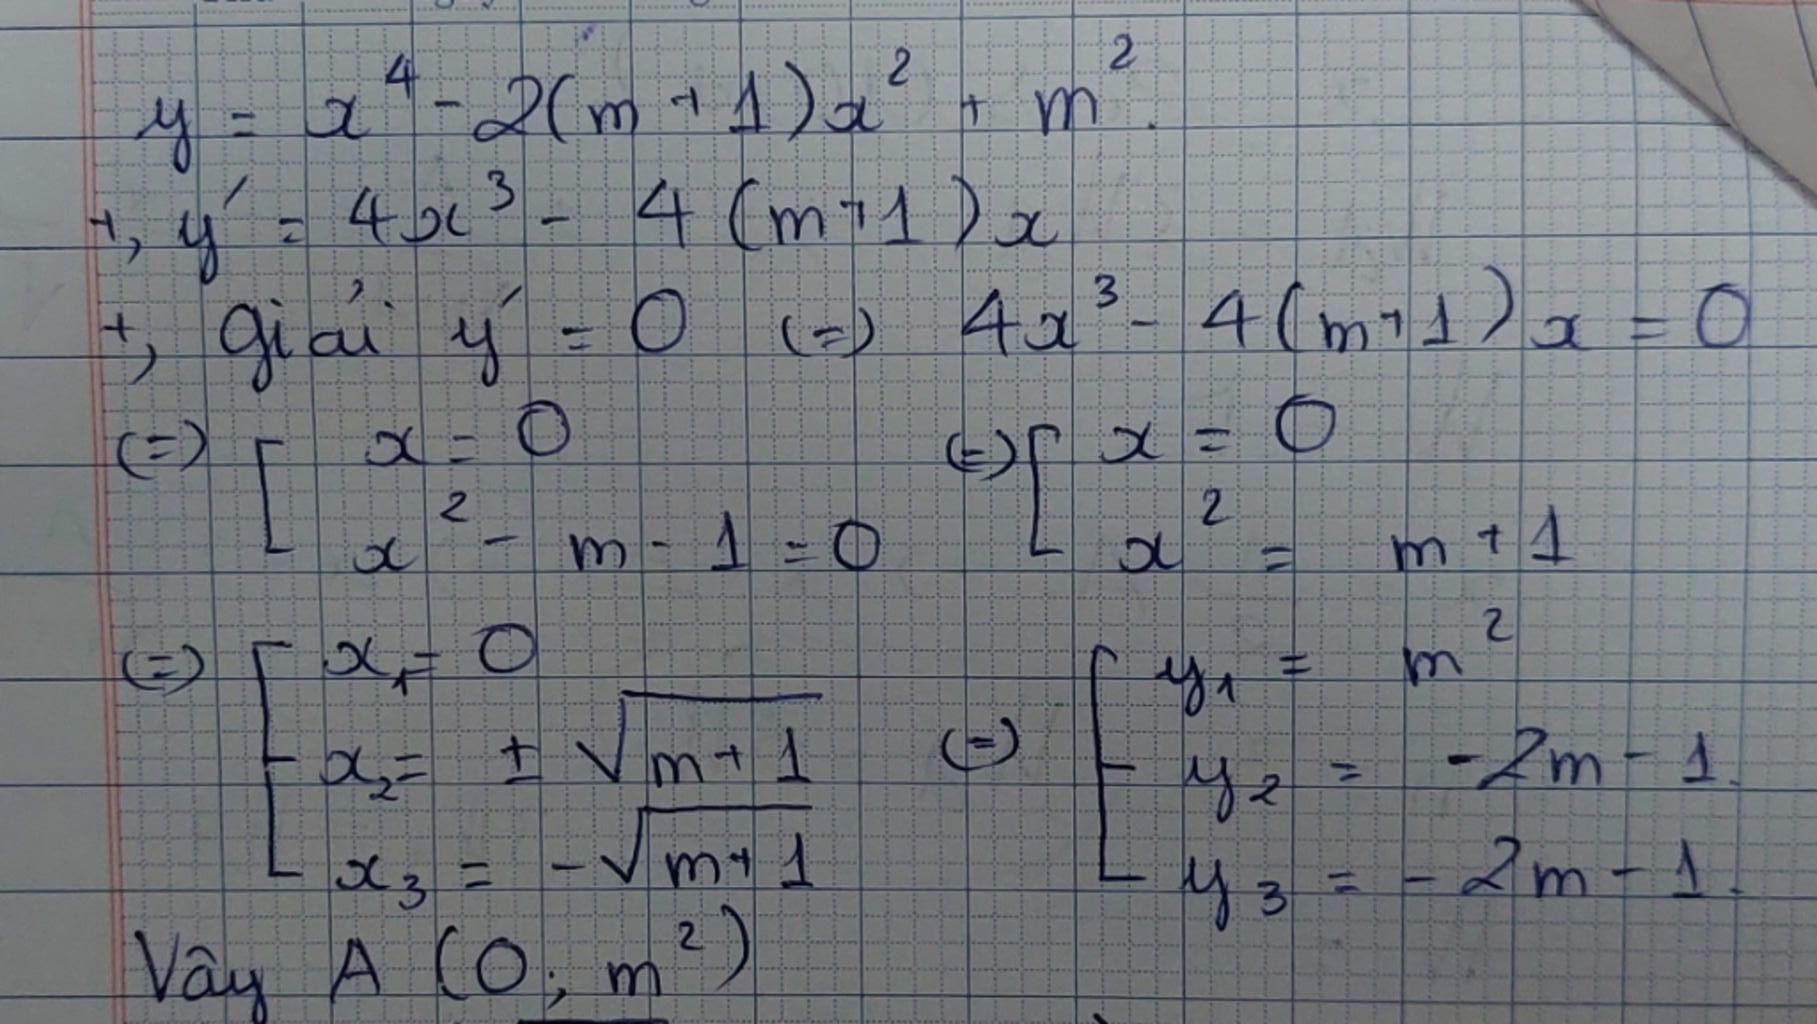 y = x⁴ - 2(m + 1)x² + m².
+, y' = 4x³ - 4(m+1)x
+, giải y' = 0 (=) 4x³ - 4(m+1)x = 0
(=) [ x = 0 (=) [ x = 0
x² - m - 1 = 0 x² = m + 1
(=) [ x₁ = 0 (=) [ y₁ = m²
x₂ = ± √(m + 1) y₂ = -2m - 1.
x₃ = -√(m+1) y₃ = -2m - 1.
Vây A (0; m²)